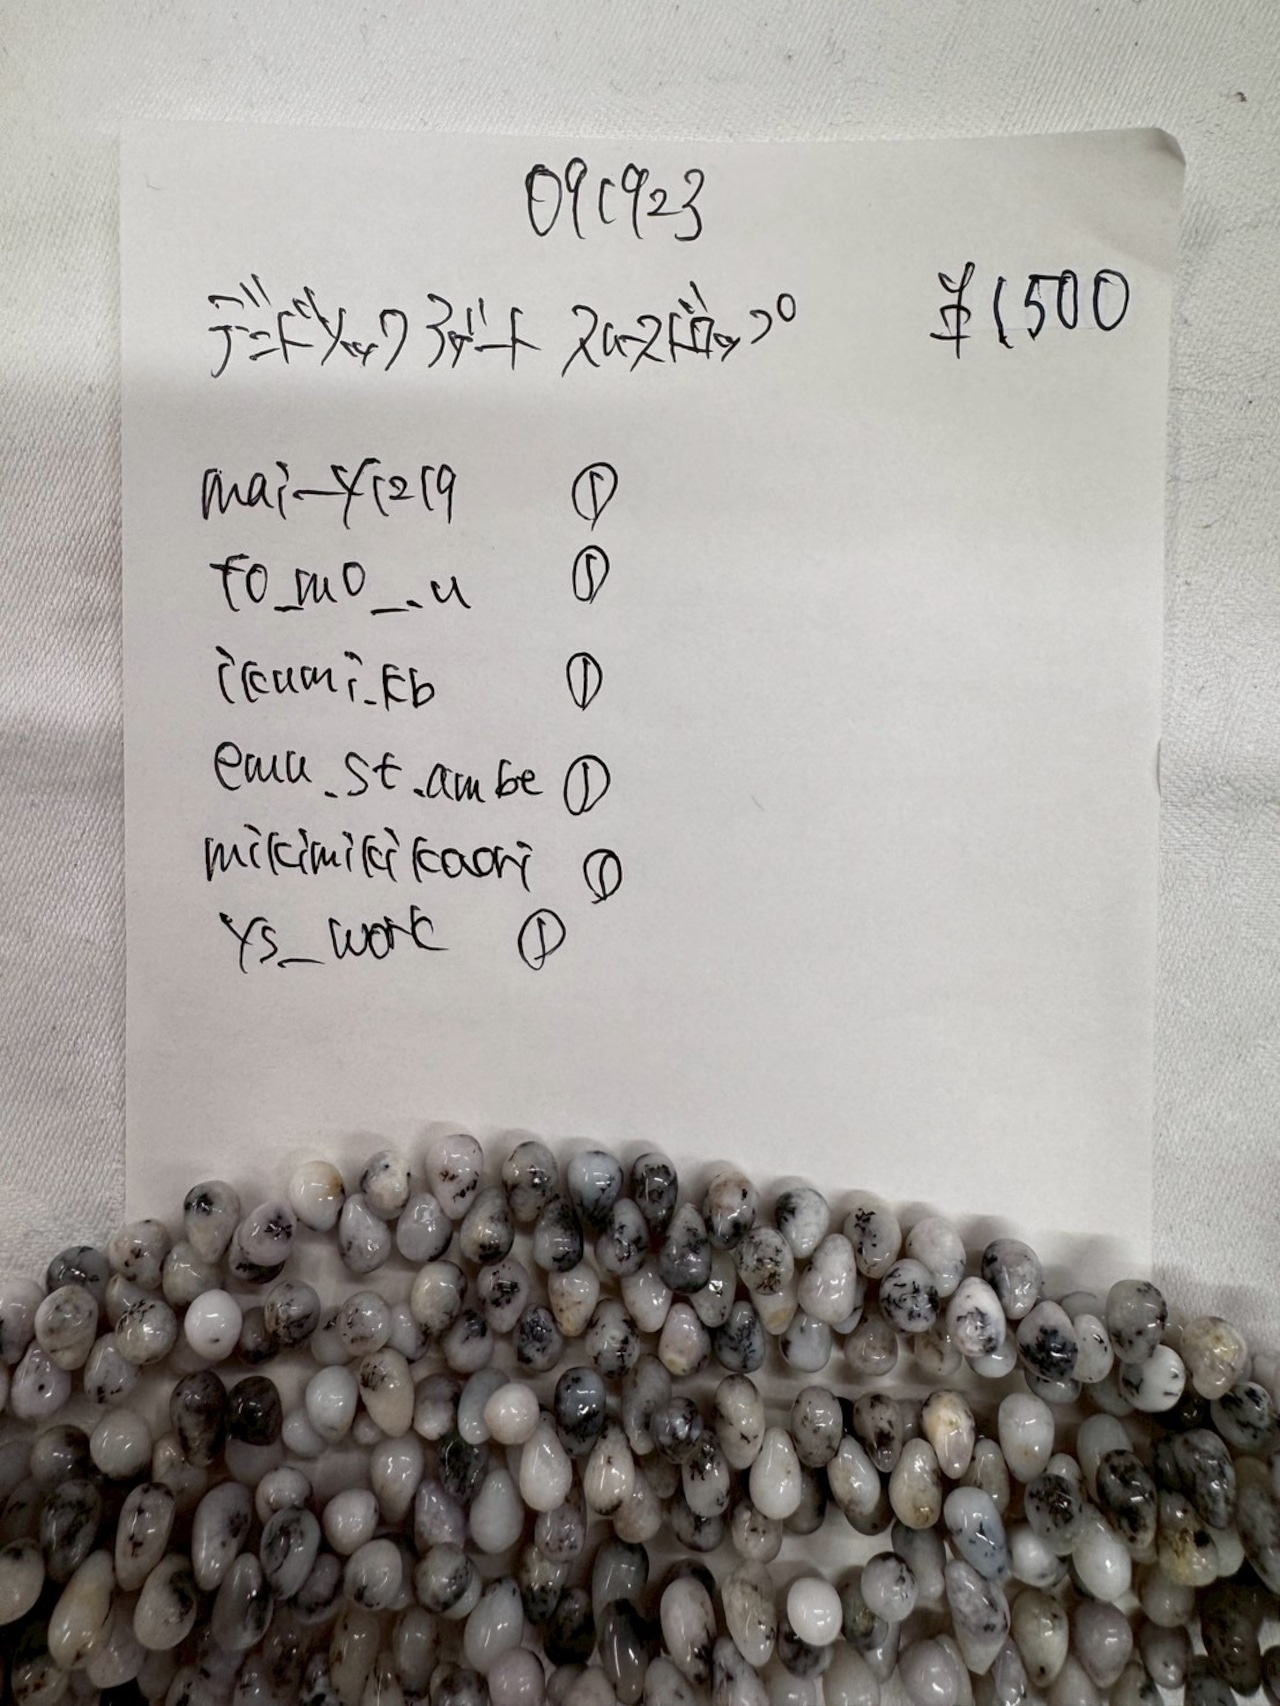 091923
デンドリックアゲート スムースドロップ ¥1500
mai_y1219 ①
to_mo__.u ①
ikumi.kb ①
emu.st.ambe ①
mikimikikaori ①
ys_work ①